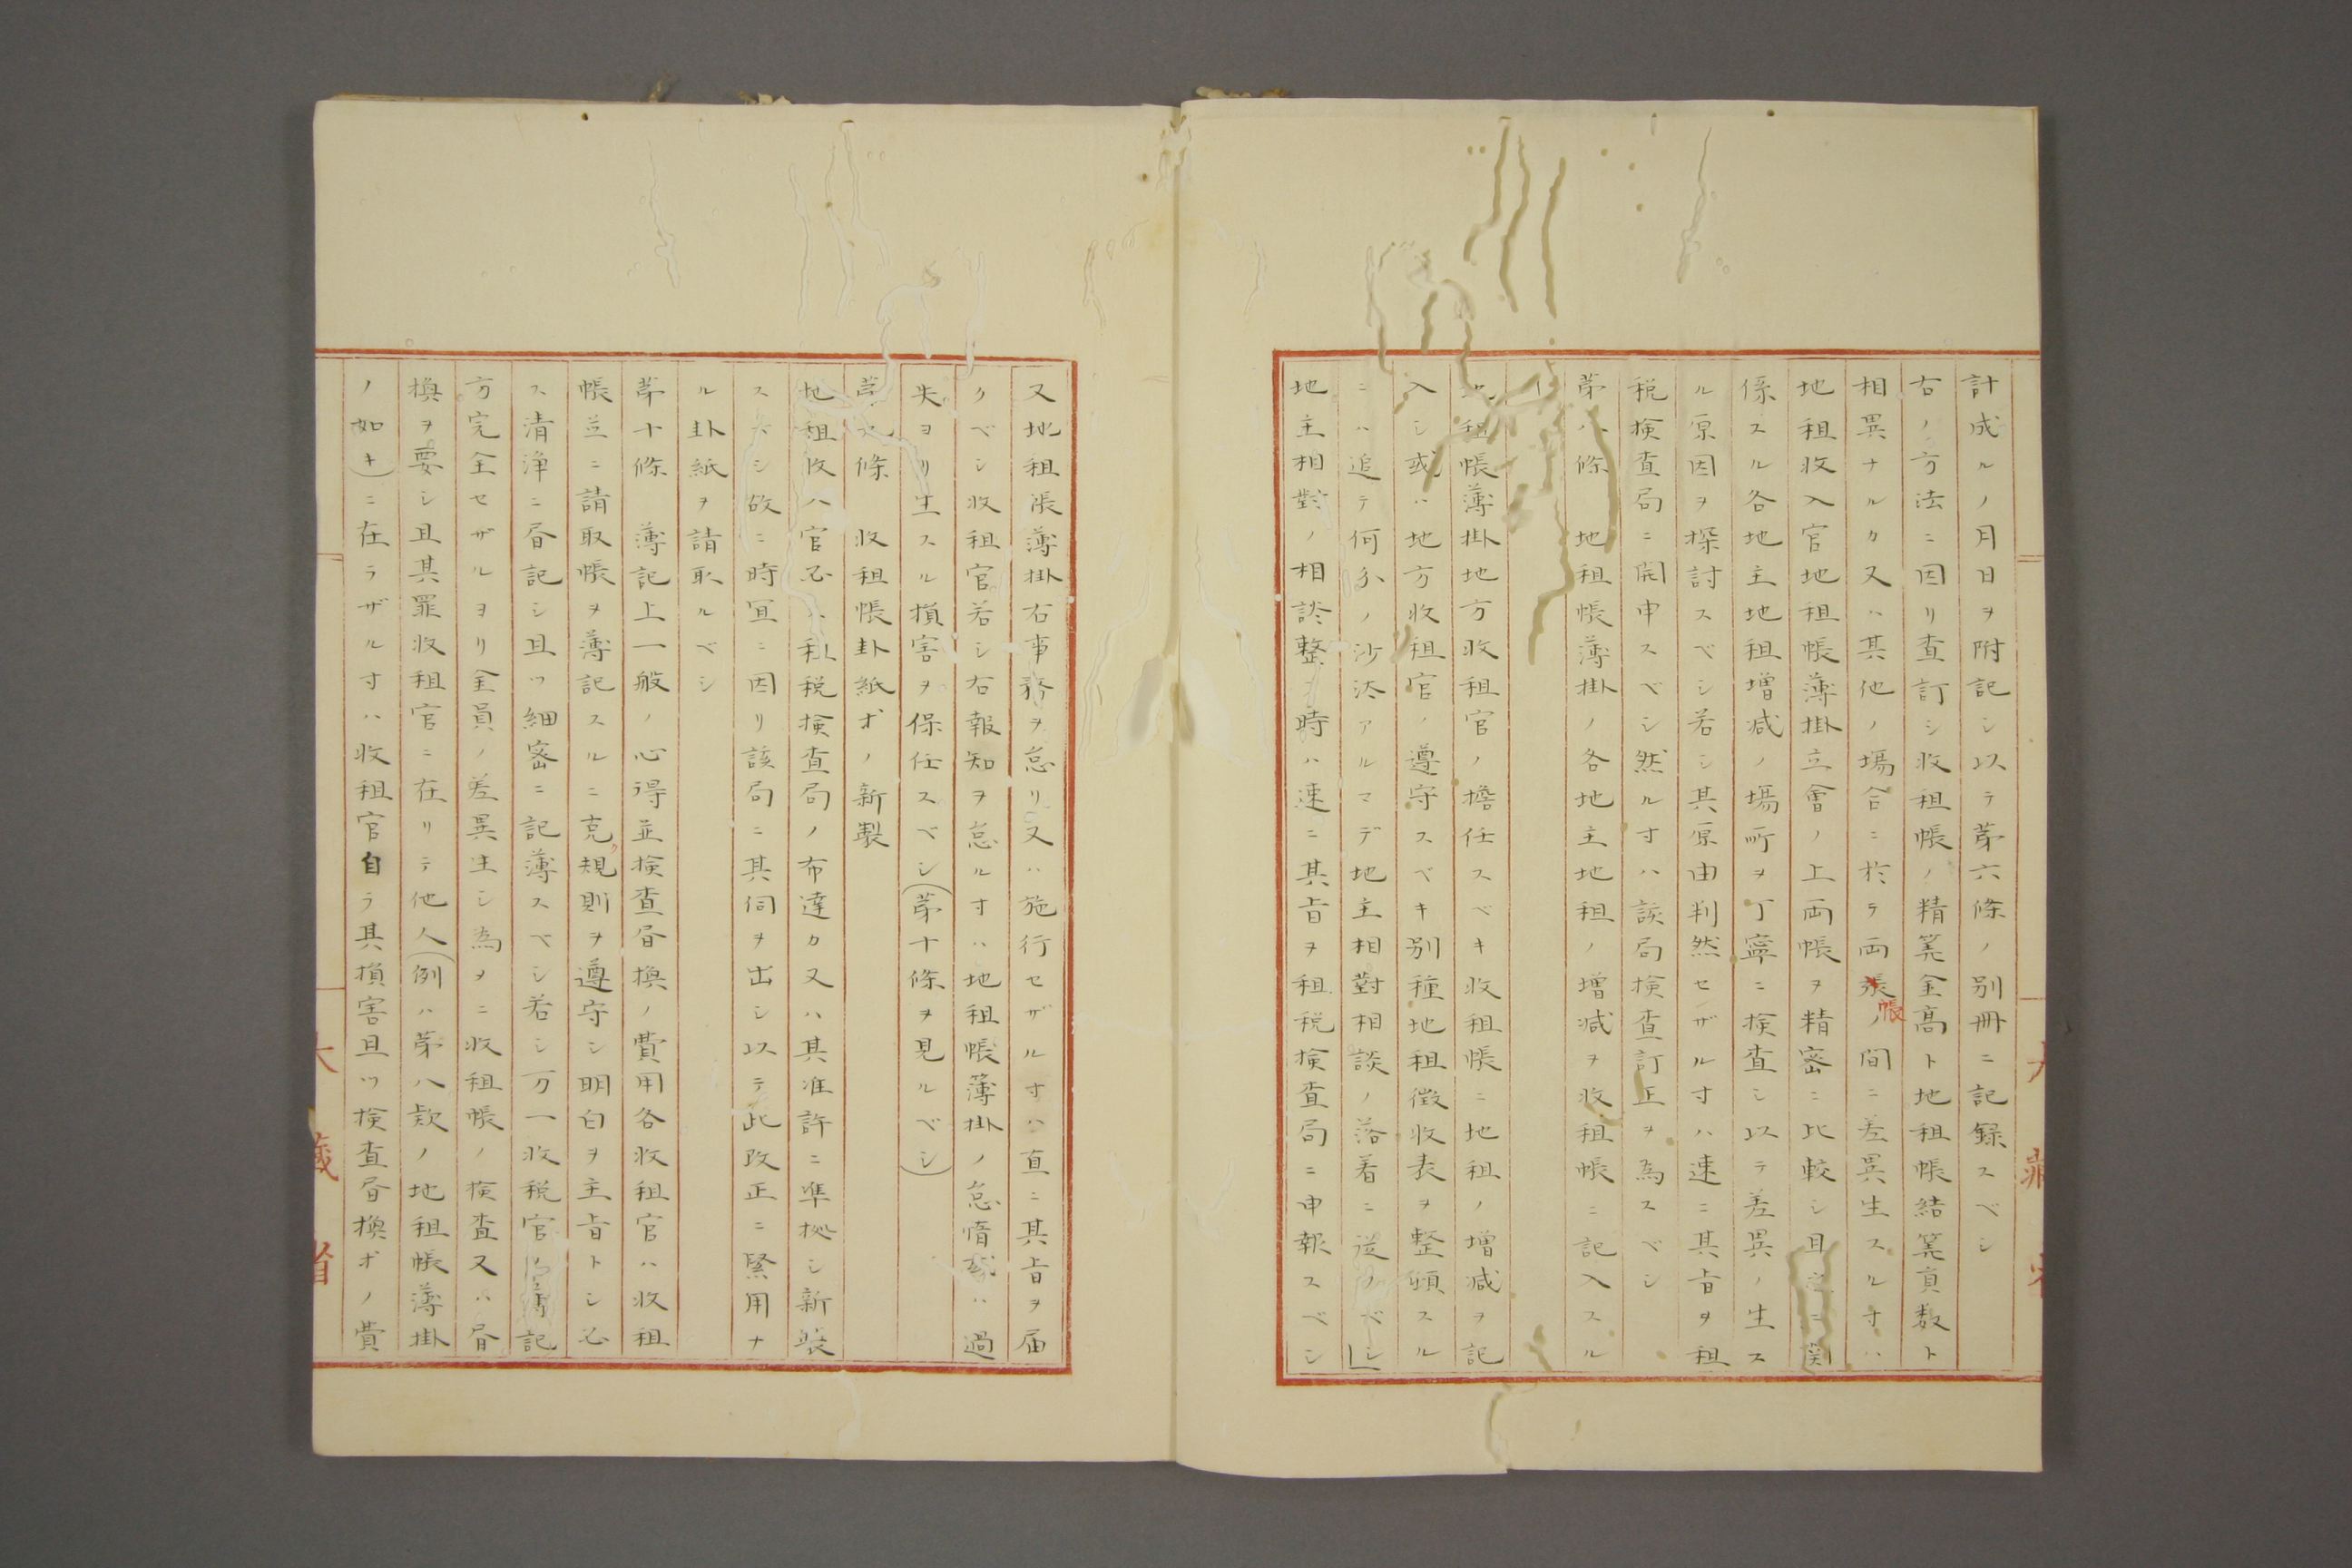 計成ルノ月日ヲ附記シ以テ苐六條ノ別冊ニ記録スベシ
右ノ方法ニ因リ査訂シ收租帳ノ精筭金髙ト地租帳結筭員数ト
相異ナルカ又ハ其他ノ塲合ニ於テ両張ノ間ニ差異生スルヿハ
帳
地租收入官地租帳薄掛立會ノ上両帳ヲ精密ニ比較シ且ニ関
係スル各地主地租増减ノ塲所ヲ丁寧ニ検査シ以テ差異ノ生ス
ル原因ヲ探討スベシ若シ其原由判然セザルヿハ速ニ其旨ヲ租
税検査局ニ開申スベシ然ルヿハ該局検査訂正ヲ為スベシ
苐八條　地租帳薄掛ノ各地主地租ノ增减ヲ收租帳ニ記入スル
租帳薄掛地方收租官ノ擔任スベキ收租帳ニ地租ノ增减ヲ記
入シ或ハ地方收租官ノ遵守スベキ別種地租徴收表ヲ整頓スル
ニハ追テ何分ノ沙汰アルマデ地主相對相談ノ落着ニ従フベシ
地主相對ノ相談整時ハ速ニ其旨ヲ租税検査局ニ申報スベシ
又地租張薄掛右事務ヲ怠リ又ハ施行セザルヿハ直ニ其旨ヲ届
クベシ收租官若シ右報知ヲ怠ルヿハ地租帳簿掛ノ怠惰ハ過
失ヨリ生スル損害ヲ保任スベシ（苐十條ヲ見ルベシ）
苐九條　收租帳卦紙ホノ新製
地租收ハ官必ハ租税検査局ノ布達カ又ハ其准許ニ凖拠シ新裝
スベシ故ニ時宜ニ因リ該局ニ其伺ヲ出シ以テ此改正ニ緊用ナ
ル卦紙ヲ請取ルベシ
苐十條　薄記上一般ノ心得並検査昏換ノ費用各收租官ハ收租
帳並ニ請取帳ヲ薄記スルニ克ク規則ヲ遵守シ明白ヲ主旨トシ必
ス清淨ニ昏記シ且ツ細密ニ記薄スベシ若シ万一收税官薄記
方完全セザルヨリ金員ノ差異生シ為メニ收租帳ノ検査又ハ昏
換ヲ要シ且其罪收租官ニ在リテ他人（例ハ苐八欵ノ地租帳薄掛
ノ如キ）ニ在ラザルヿハ收租官自ラ其損害且ツ検査昏換ホノ費
大藏省